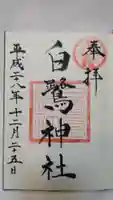 奉拝
白鷺神社
平成二八年十二月二五日